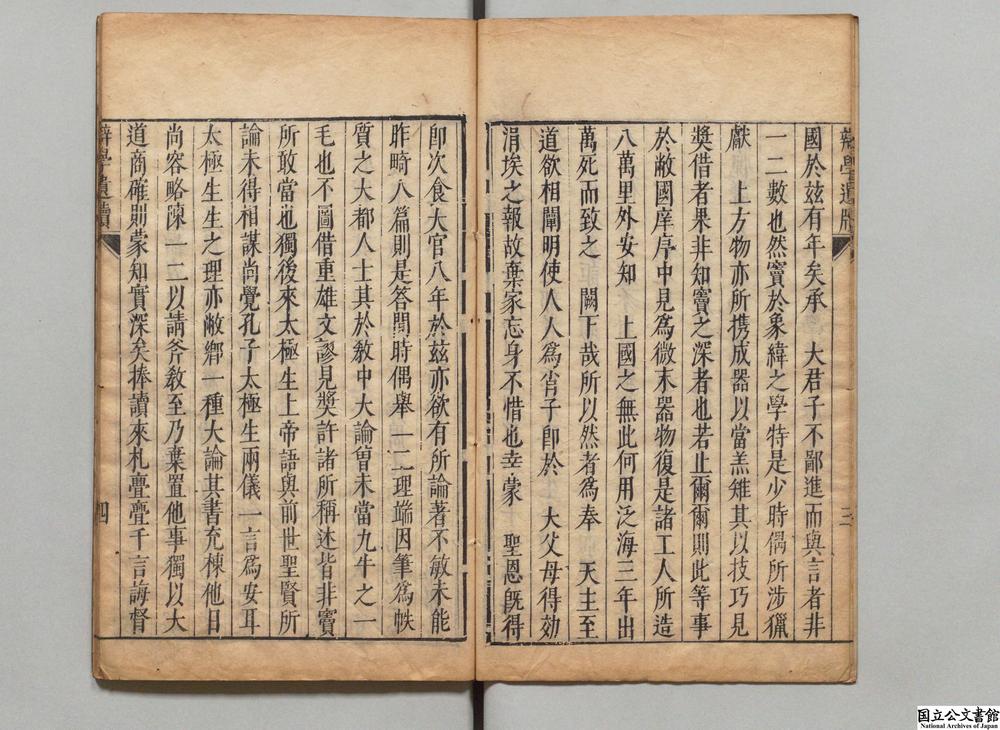 辯學遺牘
三
國於茲有年矣承　大君子不鄙進而與言者非
一二數也然竇於象緯之學特是少時偶所涉獵
獻　上方物亦所携成器以當羔雉其以技巧見
奬借者果非知竇之深者也若止爾爾則此等事
於敝國庠序中見爲微末器物復是諸工人所造
八萬里外安知　上國之無此何用泛海三年出
萬死而致之　闕下哉所以然者爲奉　天主至
道欲相闡明使人人爲肖子卽於　大父母得效
涓埃之報故棄家忘身不惜也幸蒙　聖恩旣得
卽次食大官八年於茲亦欲有所論著不敏未能
昨畸人八篇則是答問時偶舉一二理端因筆爲帙
質之大都人士其於敎中大論曾未當九牛之一
毛也不圖借重雄文謬見奬許諸所稱述皆非竇
所敢當也獨後來太極生上帝語與前世聖賢所
論未得相謀尚覺孔子太極生兩儀一言爲安耳
太極生生之理亦敝鄉一種大論其書充棟他日
尚容略陳一二以請斧敎至乃棄置他事獨以大
道商確則蒙知實深矣捧讀來札亹亹千言誨督
辯學遺牘
四
国立公文書館
National Archives of Japan